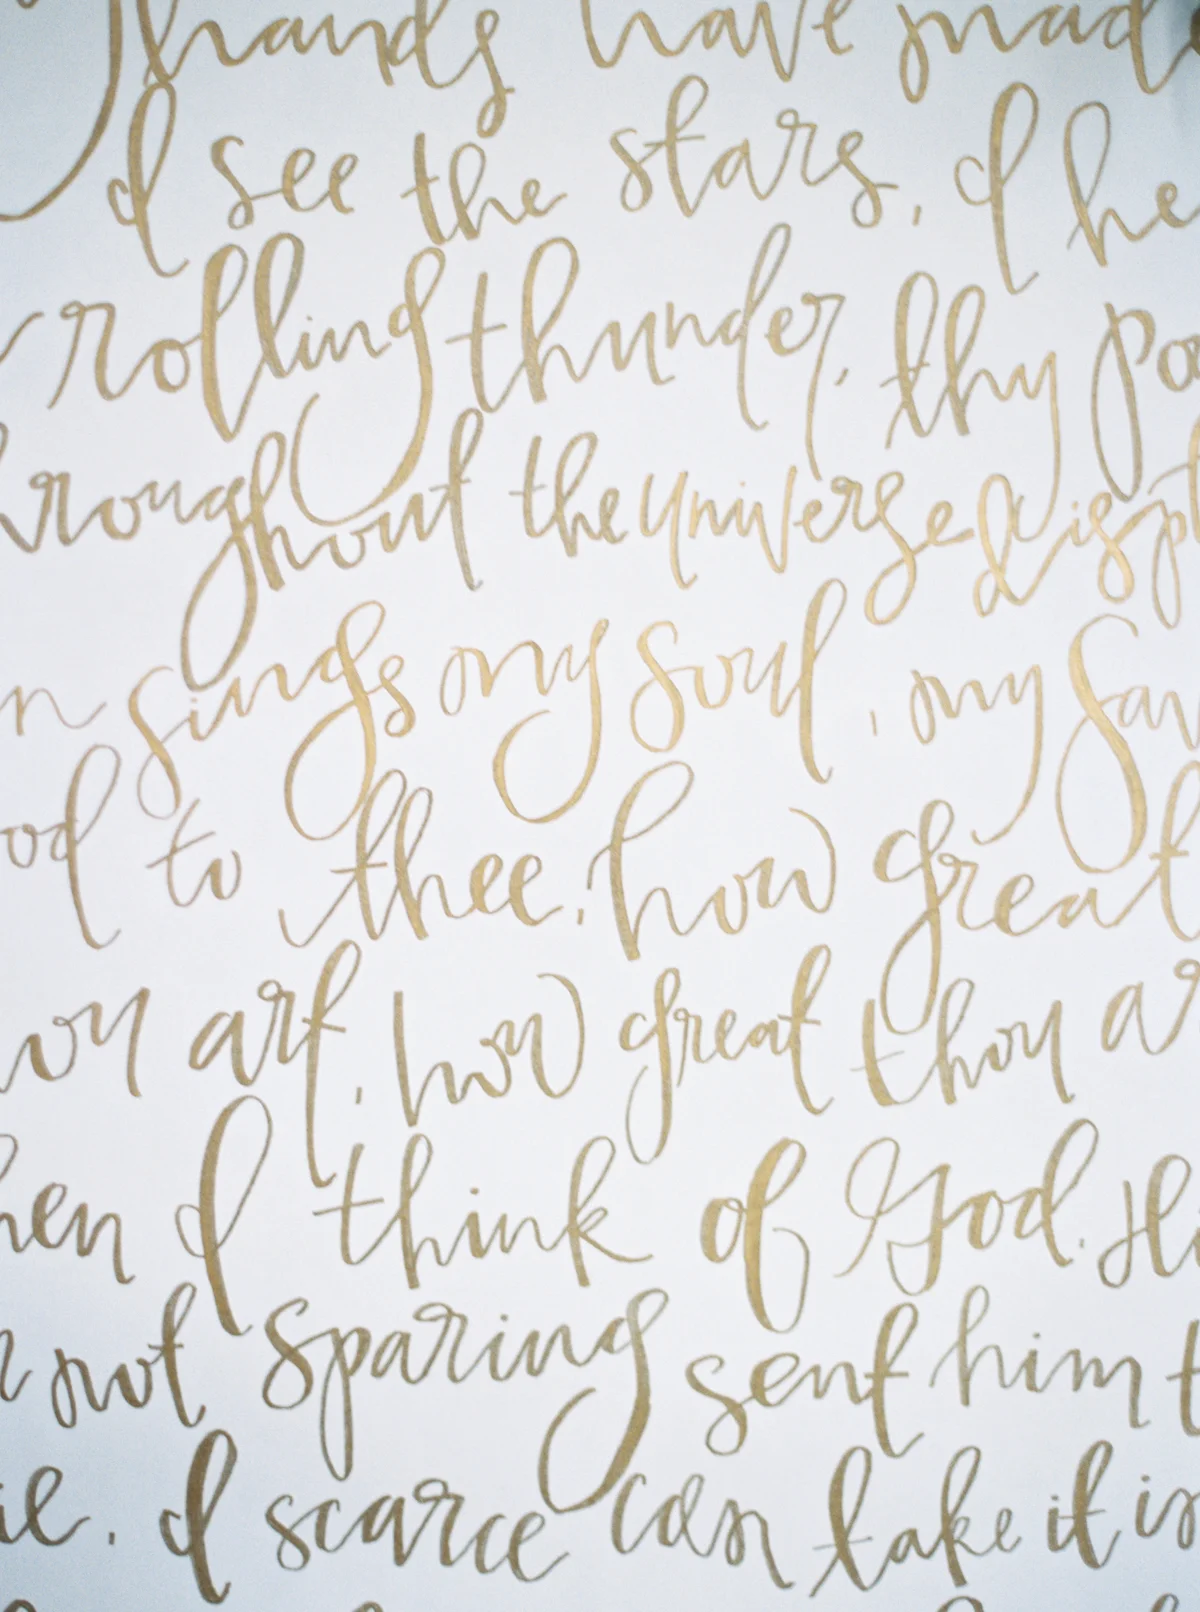 hands have made
I see the stars, I he
rolling thunder, thy po
hroughout the universe displ
n sings my soul, my Sav
od to thee, how great
hou art, how great thou ar
hen I think of God, Hi
n not sparing sent him t
ie, I scarce can take it in